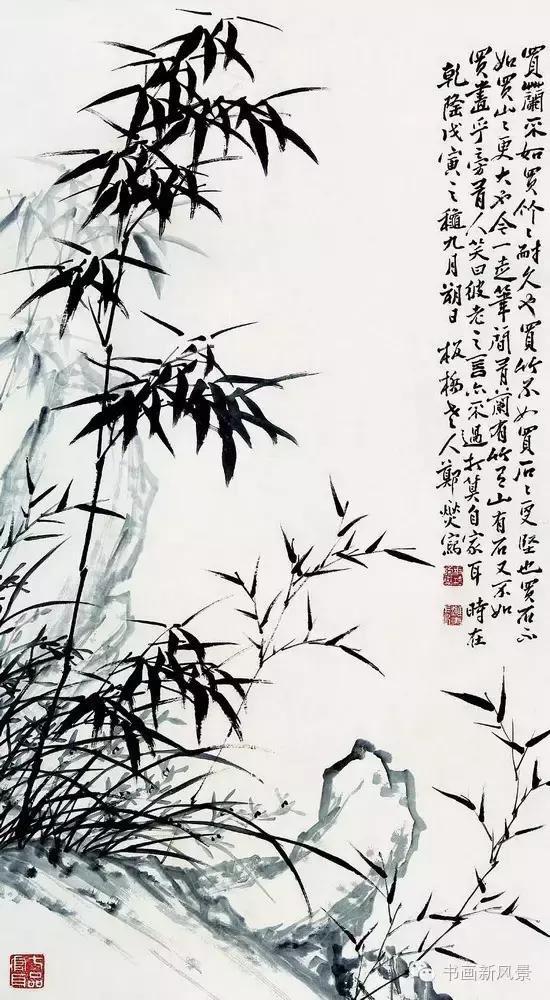 買蘭不如買竹〻耐久也買竹不如買石〻更堅也買石不
如買山〻更大也今一走筆間有蘭有竹有山有石又不如
買畫乎旁有人笑曰彼老之言亦不過打算自家耳時在
乾隆戊寅之穐九月朔日 板橋老人鄭燮寫
七品官耳
书画新风景